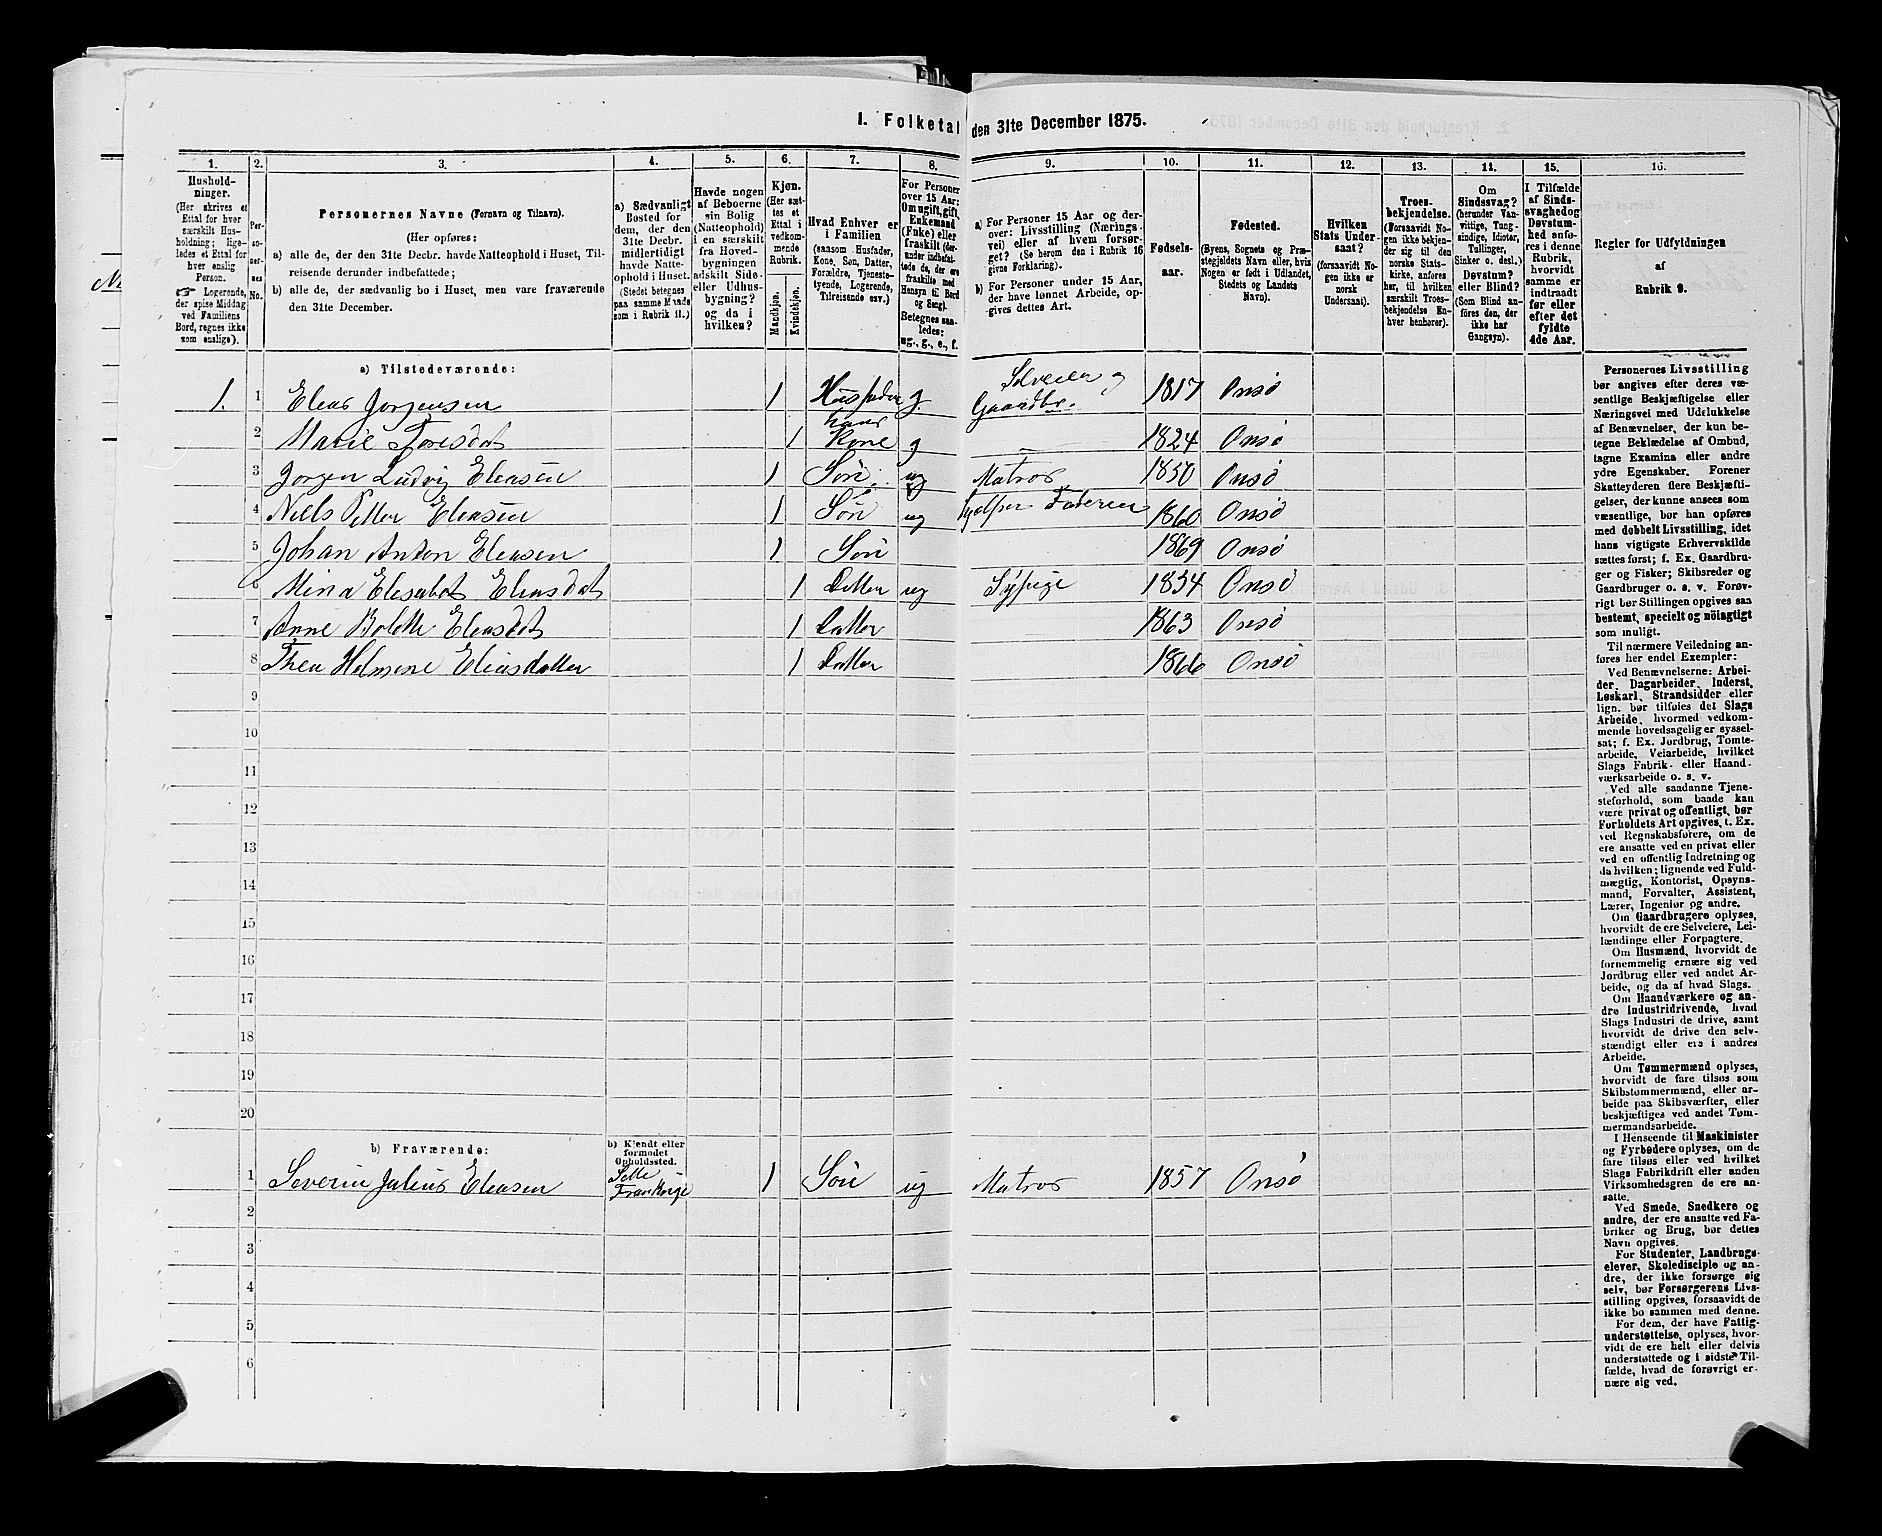 1. Folketal
den 31te December 1875.
1.
2.
3.
4.
5.
6.
7.
8.
9.
10.
11.
12.
13.
14.
15.
16.
Hushold-
ninger.
(Her skrives et
Ettal for hver
særskilt Hus-
holdning; lige-
ledes et Ettal for
hver enslig
Person.
☞ Logerende,
der spise Middag
ved Familiens
Bord, regnes ikke
som enslige).
Per-
so-
ner-
nes
No.
Personernes Navne (Fornavn og Tilnavn).
(Her opføres:
a) alle de, der den 31te Decbr. havde Natteophold i Huset, Til-
reisende derunder indbefattede;
b) alle de, der sædvanlig bo i Huset, men vare fraværende
den 31te December.
a) Sædvanligt
Bosted for
dem, der den
31te Decbr.
midlertidigt
havde Natte-
ophold i Huset.
(Stedet betegnes
paa samme Maade
som i Rubrik 11.)
Havde nogen
af Beboerne
sin Bolig
(Natteophold)
i en særskilt
fra Hoved-
bygningen
adskilt Side-
eller Udhus-
bygning?
og da i
hvilken?
Kjøn.
(Her sæt-
tes et
Ettal i
vedkom-
mende
Rubrik.
Mandkjøn.
Kvindekjøn.
Hvad Enhver er
i Familien
(saasom Husfader,
Kone, Søn, Datter,
Forældre, Tjeneste-
tyende, Logerende,
Tilreisende osv.)
For Personer
over 15 Aar:
Om ugift, gift,
Enkemand
(Enke) eller
fraskilt (der-
under indbefat-
tede de, der ere
fraskilte med
Hensyn til Bord
og Seng).
Betegnes saa-
ledes:
ug., g., e., f.
a) For Personer 15 Aar og der-
over: Livsstilling (Nærings-
vei) eller af hvem forsør-
get? (Se herom den i Rubrik 16
givne Forklaring).
b) For Personer under 15 Aar,
der have lønnet Arbeide, op-
gives dettes Art.
Fødsels-
aar.
Fødested.
(Byens, Sognets og Præ-
stegjeldets Navn eller, hvis
Nogen er født i Udlandet,
Stedets og Landets
Navn).
Hvilken
Stats Under-
saat?
(forsaavidt No-
gen ikke er
norsk
Undersaat).
Troes-
bekjendelse.
(Forsaavidt No-
gen ikke bekjen-
der sig til den
norske Stats-
kirke, anføres
her, til hvilken
særskilt Troes-
bekjendelse En-
hver henhører).
Om
Sindssvag?
(herunder Van-
vittige, Tung-
sindige, Idioter,
Tullinger,
Sinker o. desl.)
Døvstum?
eller Blind?
(Som Blind an-
føres den, der
ikke har
Gangsyn).
I Tilfælde
af Sinds-
svaghed og
Døvstum-
hed anfø-
res i denne
Rubrik,
hvorvidt
samme er
indtraadt
før eller
efter det
fyldte
4de Aar.
Regler for Udfyldningen
af
Rubrik 9.
a) Tilstedeværende:
1. 1 Elias Jorgensen 1 Husfader g. Selveier og Gaardbr. 1817 Onsø
2 Marie Toresdat 1 hans Kone g 1824 Onsø
3 Jorgen Ludvig Eliasen 1 Søn ug Matros 1850 Onsø
4 Niels Petter Eliasen 1 Søn ug hjelper Faderen 1860 Onsø
5 Johan Anton Eliasen 1 Søn 1869 Onsø
6 Mina Elisabet Eliasdat 1 Datter ug Sypige 1854 Onsø
7 Anne Bolette Eliasdat 1 Datter 1863 Onsø
8 Thea Helmine Eliasdatter 1 Datter 1866 Onsø
9
10
11
12
13
14
15
16
17
18
19
20
b) Fraværende:
b) Kjendt eller
formodet
Opholdssted.
1 Severin Julius Eliasen Sette Frankrige 1 Søn ug Matros 1857 Onsø
2
3
4
5
6
Personernes Livsstilling
bør angives efter deres væ-
sentlige Beskjæftigelse eller
Næringsvei med Udelukkelse
af Benævnelser, der kun be-
tegne Beklædelse af Ombud,
tagne Examina eller andre
ydre Egenskaber. Forener
Skatteyderen flere Beskjæfti-
gelser, der kunne ansees som
væsentlige, bør han opføres
med dobbelt Livsstilling, idet
hans vigtigste Erhvervskilde
sættes først; f. Ex. Gaardbru-
ger og Fisker; Skibsreder og
Gaardbruger o. s. v. Forøv-
rigt bør Stillingen opgives saa
bestemt, specielt og nöiagtigt
som muligt.
Til nærmere Veiledning an-
føres her endel Exempler:
Ved Benævnelserne: Arbei-
der, Dagarbeider, Inderst,
Løskarl, Strandsidder eller
lign. bør tilføies det Slags
Arbeide, hvormed vedkom-
mende hovedsagelig er syssel-
sat; f. Ex. Jordbrug, Tomte-
arbeide, Veiarbeide, hvilket
Slags Fabrik- eller Haand-
værksarbeide o. s. v.
Ved alle saadanne Tjene-
steforhold, som baade kan
være privat og offentligt, bør
Forholdets Art opgives, t. Ex.
ved Regnskabsførere, om de
ere ansatte ved en privat eller
ved en offentlig Indretning og
da hvilken; lignende ved Fuld-
mægtig, Kontorist, Opsyns-
mand, Forvalter, Assistent,
Lærer, Ingeniør og andre.
Om Gaardbrugere oplyses,
hvorvidt de ere Selveiere, Lei-
lændinge eller Forpagtere.
Om Husmænd, hvorvidt de
fornemmelig ernære sig ved
Jordbrug eller ved andet Ar-
beide, og da af hvad Slags.
Om Haandværkere og an-
dre Industridrivende, hvad
Slags Industri de drive, samt
hvorvidt de drive den selv-
stændigt eller ere i andres
Arbeide.
Om Tømmermænd oplyses,
hvorvidt de fare tilsøs som
Skibstømmermænd, eller ar-
beide paa Skibsværfter, eller
beskjæftiges ved andet Tøm-
mermandsarbeide.
I Henseende til Maskinister
og Fyrbødere oplyses, om de
fare tilsøs eller ved hvilket
Slags Fabrikdrift eller anden
Virksomhedsgren de ere an-
satte.
Ved Smede, Snedkere og
andre, der ere ansatte ved Fa-
briker og Brug, bør dettes
Navn opgives.
For Studenter, Landbrugs-
elever, Skoledisciple og an-
dre, der ikke forsørge sig
selv, bør Forsørgerens Livs-
stilling opgives, forsaavidt de
ikke bo sammen med denne.
For dem, der have Fattig-
understøttelse, oplyses, hvor-
vidt de ere helt eller delvis
understøttede og i sidste Til-
fælde, hvad de forøvrigt er-
nære sig ved.